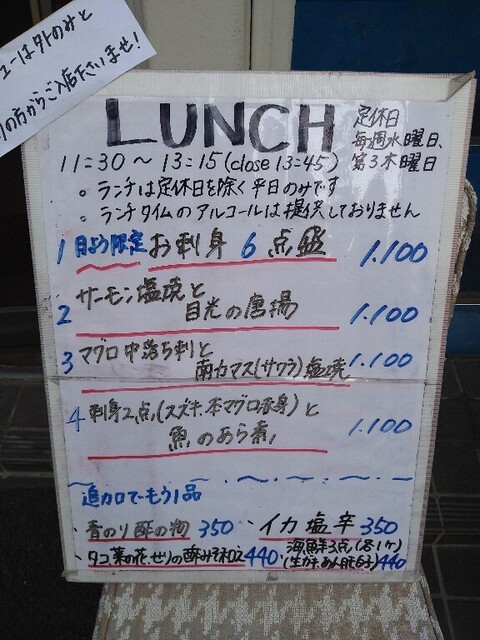 ューは夕のみと
の方からご入店下さいませ!
LUNCH
定休日
毎週水曜日、
第3木曜日
11:30〜13:15(close 13:45)
。ランチは定休日を除く平日のみです
。ランチタイムのアルコールは提供しておりません
1 月よう限定 お刺身 6点盛 1.100
2 サーモン塩焼と
目光の唐揚 1.100
3 マグロ中落ち刺と
南カマス(サワラ)塩焼 1.100
4 刺身2点(スズキ、本マグロ赤身)と
魚のあら煮 1.100
追加でもう1品
・青のり酢の物 350 ・イカ塩辛 350
・タコ、菜の花、せりの酢みそ和え 440
・海鮮3点(各1ケ)
(生カキ、あん肝、 440